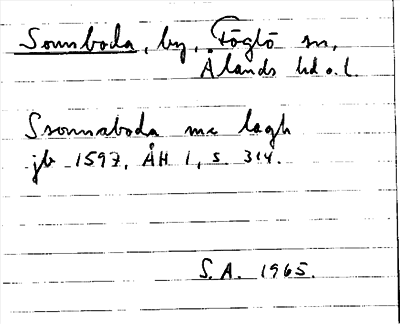 Sonnboda, by, Föglö sn,
Ålands hd o. l.
Ssonnaboda mz lagh
jb 1597, ÅH 1, s. 314.
S.A. 1965.